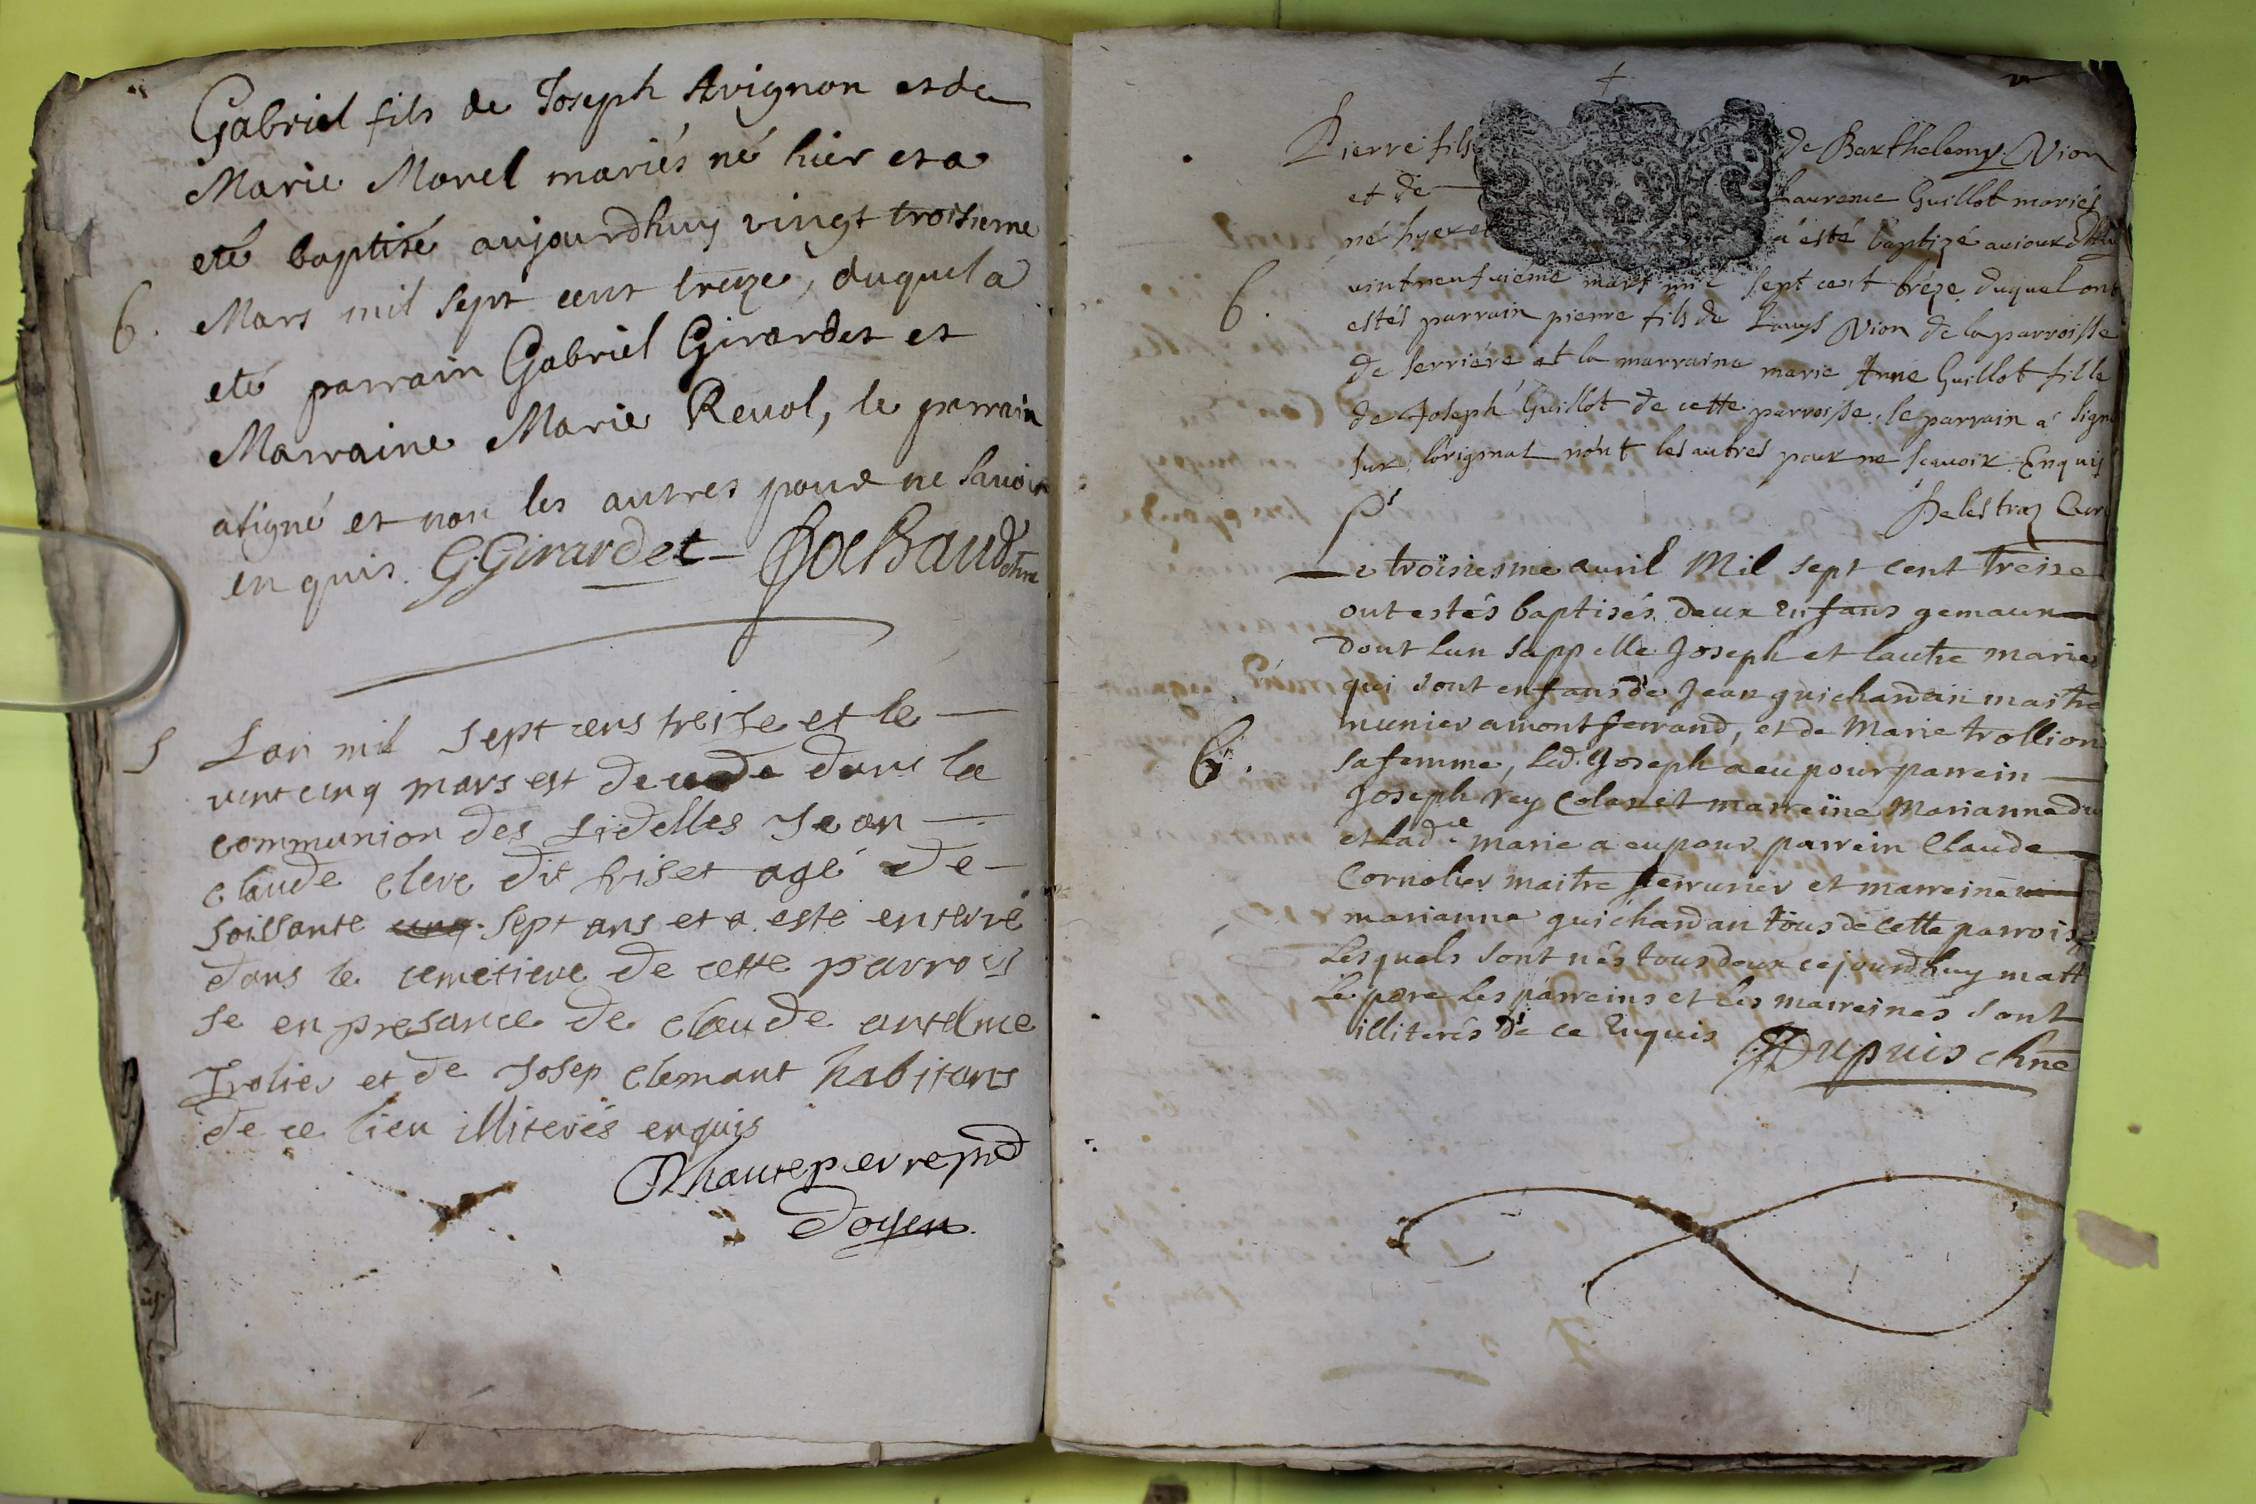 Gabriel fils de Joseph Avignon et de
Marie Morel mariés né hier et a
eté baptisé aujourdhuy vingt troisieme
6. Mars mil sept cent treize, duquel a
eté parrain Gabriel Girardet et
Marraine Marie Revol, le parrain
a signé et non les autres pour ne savoir
enquis. GGirardet
S Lan mil sept cens treise et le
vint cinq mars est decede dans la
communion des fidelles Jean
claude clere dit friset agé de
soissante cinq sept ans et a esté enterré
dans le cemetiere de cette parrois
se en presance de claude antelme
Trolier et de Josep clemant habitans
de ce lieu illiterés enquis
Doyen
Pierre fils de Barthelemy Nion
et de Laurence Guillot mariés
né hyer et a esté baptizé aujourdhuy
vintneufvième mars mil sept cent trèze duquel ont
6. estés parrain pierre fils de Louys Nion de la parroisse
de serrière et la marraine marie Anne Guillot fille
de Joseph Guillot de cette parroisse, le parrain a signé
sur l'original nont les autres pour ne scavoir Enquis
Delestraz Curé
Le troisiesme avril Mil sept cent treize
ont estés baptisés deux enfans gemaux
dont lun sappelle Joseph et lautre marie
qui sont enfans de Jean guichardan maitre
munier a montferrand, et de Marie trollion
6. sa femme, led. Joseph a eu pour parrein
Joseph rey Colas et marreine Marianne
et lad.te marie a eu pour parrein Claude
Cornolier maitre serrurier et marreine
marianne guichardan tous de cette parroisse
Lesquels sont nés tous deux cejourdhuy matt
Le pere les parreins et les marreines sont
illiterés de ce Enquis Dupuis chne